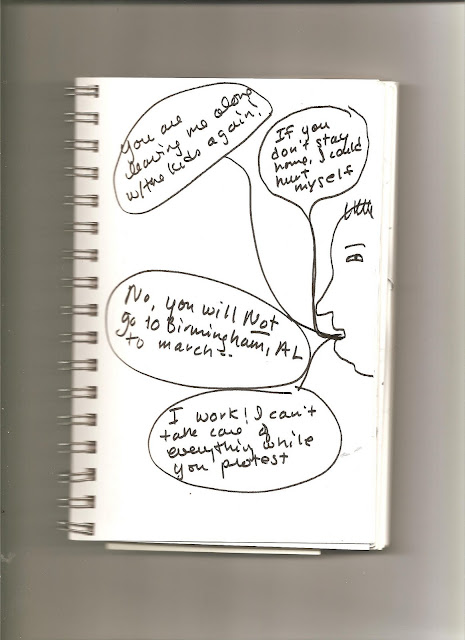 You are
leaving me alone
w/the kids again!
If you
don't stay
home, I could
hurt
myself
No, you will Not
go to Birmingham, AL
to march..
I work! I can't
take care of
everything while
you protest